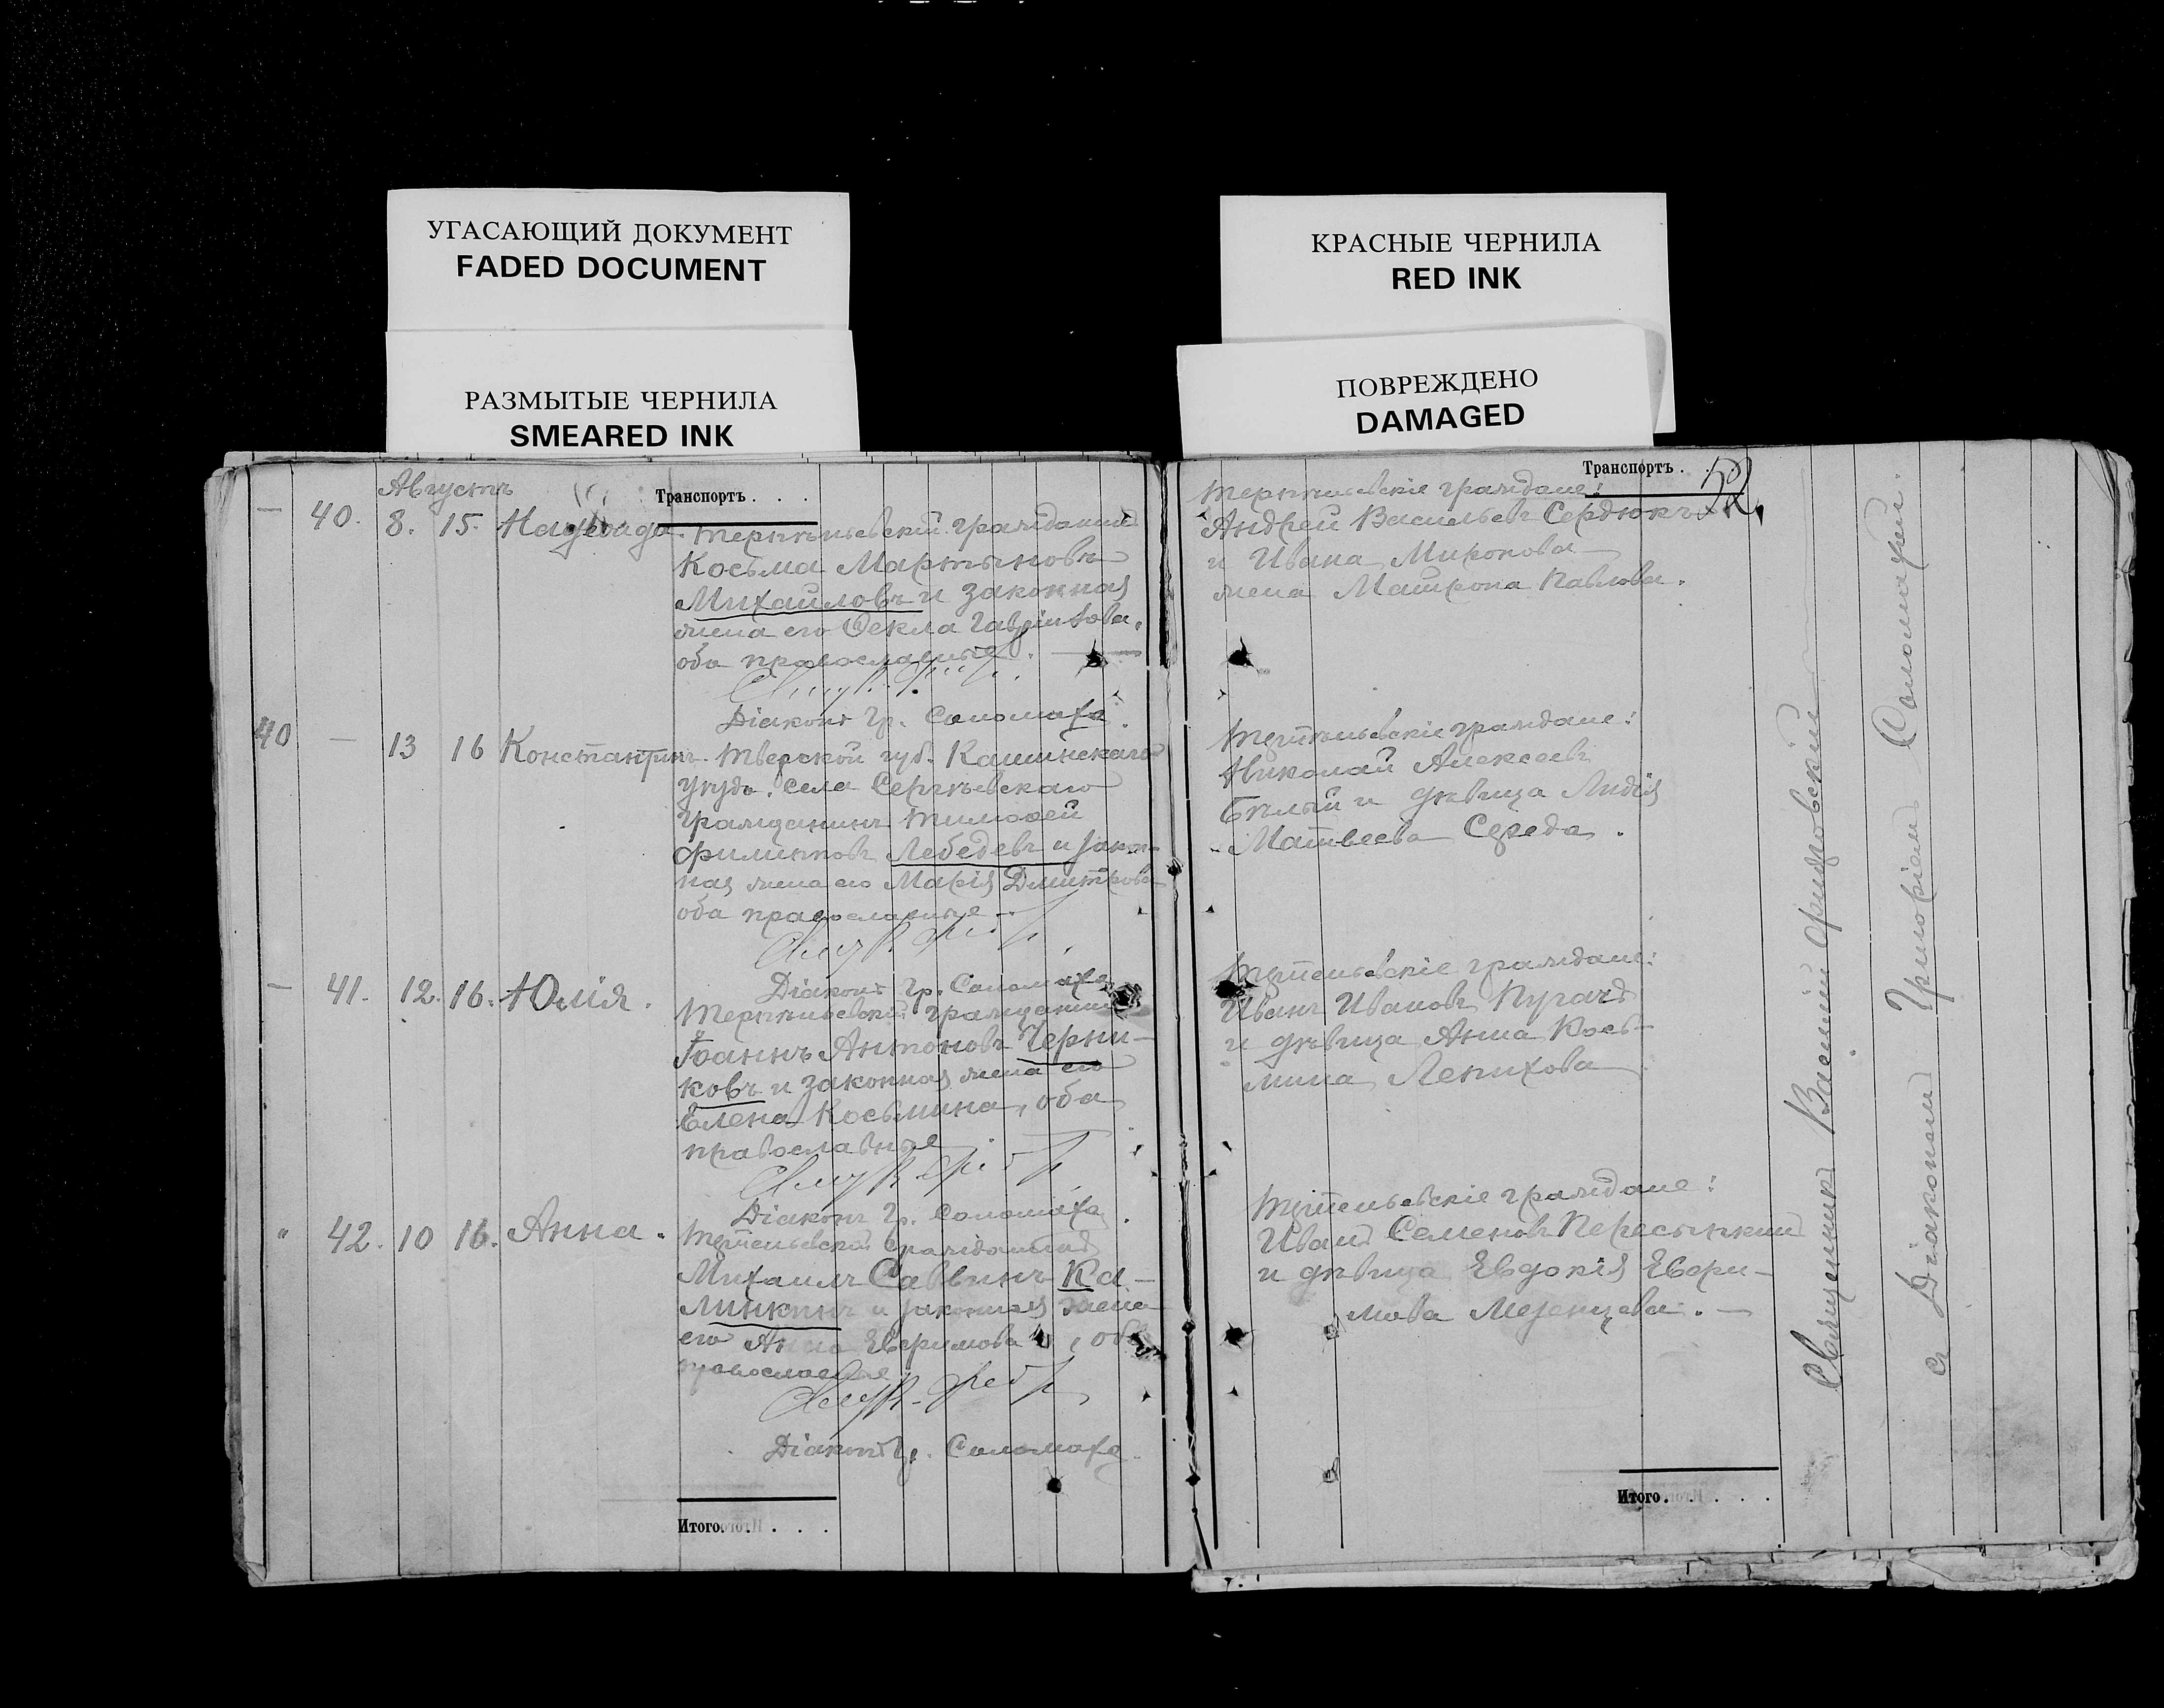 УГАСАЮЩИЙ ДОКУМЕНТ
FADED DOCUMENT
РАЗМЫТЫЕ ЧЕРНИЛА
SMEARED INK
КРАСНЫЕ ЧЕРНИЛА
RED INK
ПОВРЕЖДЕНО
DAMAGED
Августъ
Транспортъ . . .
— 40. 8. 15. Надежда.
Терпѣньевскій гражданинъ
Косьма Мартыновъ
Михайловъ и законная
жена его Ѳекла Гавріилова,
оба православные.
Діаконъ Гр. Соломаха.
40 — 13 16 Константинъ.
Тверской губ. Кашинскаго
уѣзда. села Сергѣевскаго
гражданинъ Тимофей
Филипповъ Лебедевъ и закон-
ная жена его Марія Дмитрова
оба православные.
Діаконъ Гр. Соломаха
— 41. 12. 16. Юлія.
Терпѣньевскій гражданинъ
Іоаннъ Антоновъ Черни-
ковъ и законная жена его
Елена Косьмина, оба
православные
Діаконъ Гр. Соломаха.
" 42. 10 16. Анна.
гражданинъ
Михаилъ Саввинъ Ка-
линкинъ и законная жена
его Анна Евфимова, оба
православные
Діаконъ Гр. Соломаха.
Итого. . . . .
Транспортъ . . .
52
Терпѣньевскіе граждане:
Андрей Васильевъ Сердюкъ
и Ивана Миронова
жена Матрона Павлова.
граждане:
Николай Алексеевъ
Бѣлый и дѣвица Лидія
Матвеева Середа.
граждане:
Иванъ Ивановъ Пугачъ
и дѣвица Анна Кось-
мина Лепихова
граждане:
Иванъ Семеновъ Пересыпкинъ
и дѣвица Евдокія Евфи-
мова Мезенцева. —
Итого. . . . .
Священникъ Василій
съ Діакономъ Григоріемъ Соломахой.